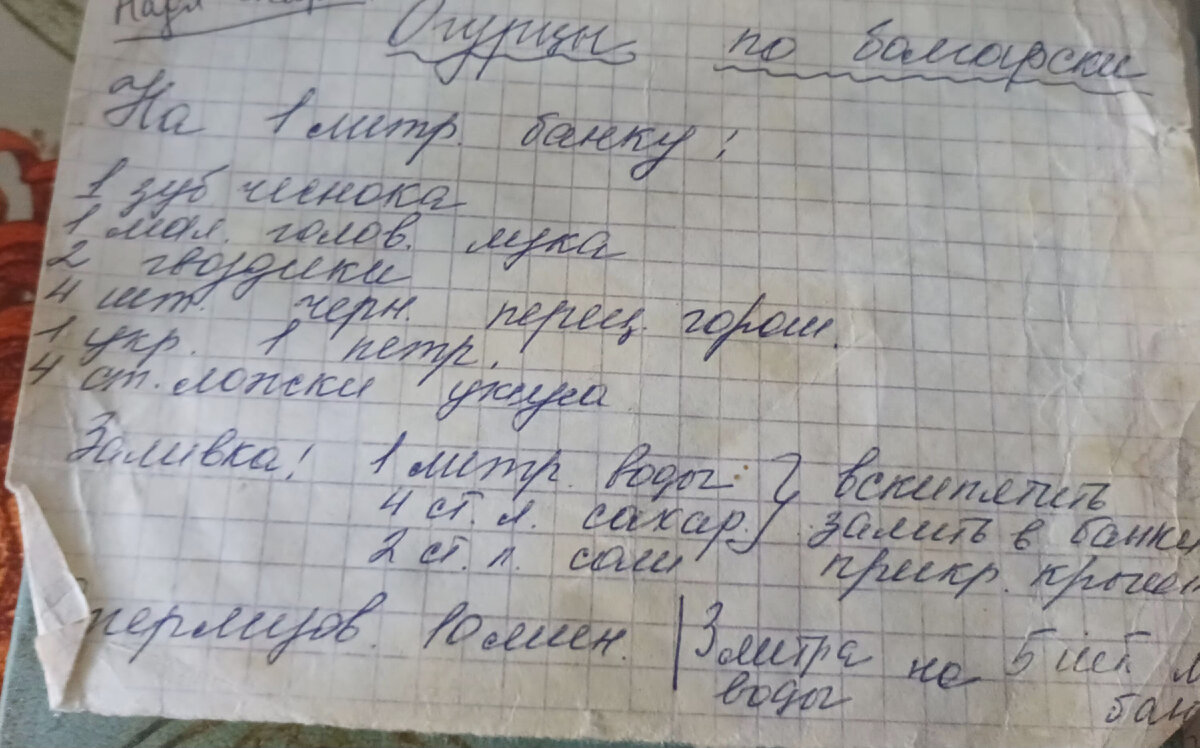 Огурцы по болгарски
На 1 литр. банку:
1 зуб чеснока
1 мал. голов. лука
2 гвоздики
4 шт. черн. перец. горош.
1 укр. 1 петр.
4 ст. ложки уксуса
Заливка: 1 литр. воды вскипятить
4 ст. л. сахар. залить в банки
2 ст. л. соли прикр. крышк
стерлизов. 10 мин. 3 литра на 5
воды